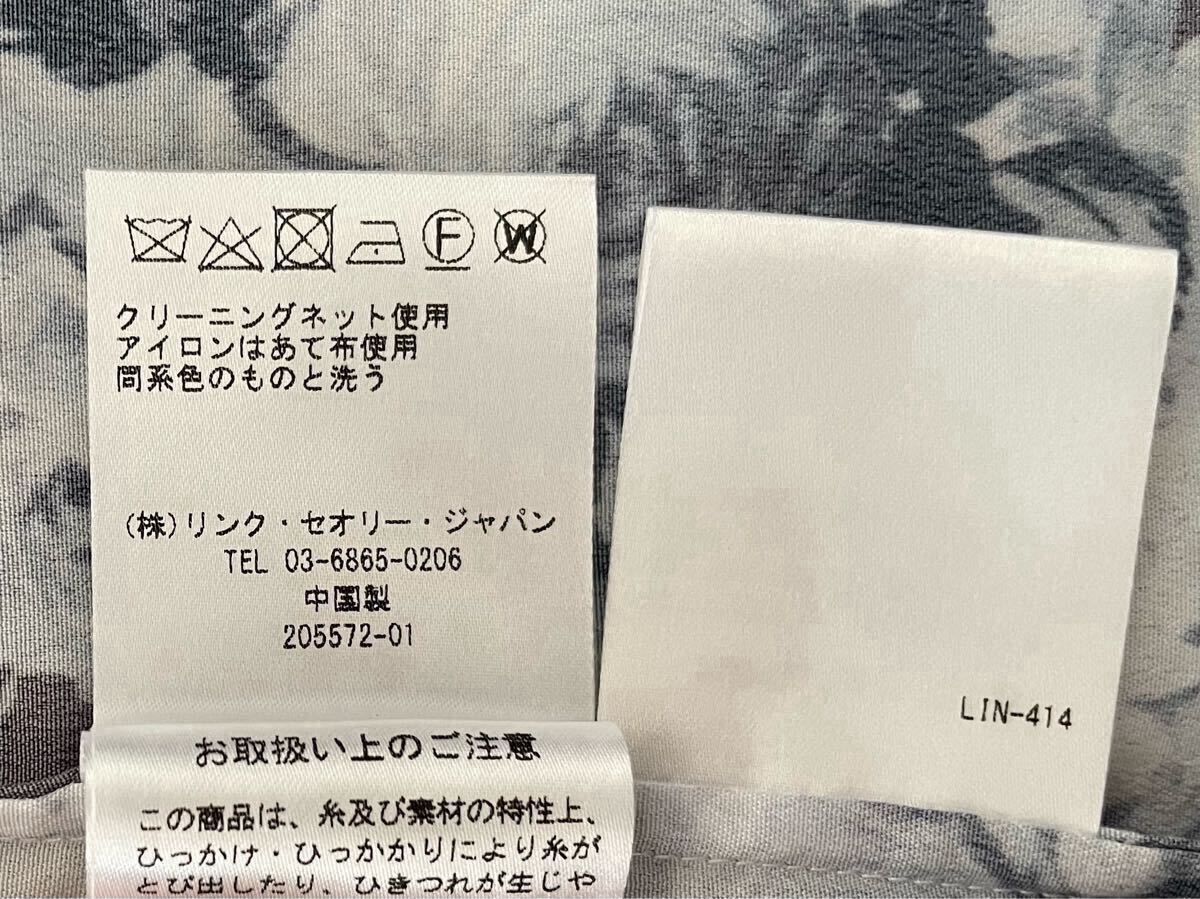 F W
クリーニングネット使用
アイロンはあて布使用
同系色のものと洗う
(株)リンク・セオリー・ジャパン
TEL 03-6865-0206
中国製
205572-01
お取扱い上のご注意
この商品は、糸及び素材の特性上、
ひっかけ・ひっかかりにより糸が
とび出したり、ひきつれが生じや
LIN-414